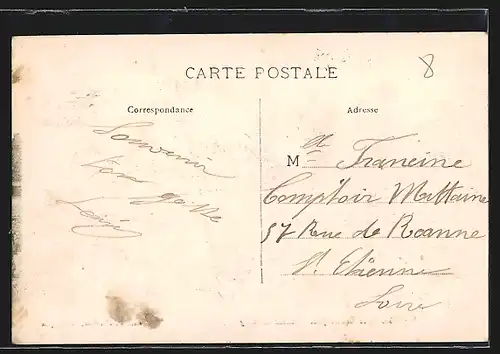 8
CARTE POSTALE
Correspondance
Souvenir
ton
Adresse
Mlle Francine
Comptoir Mattaine
57 Rue de Roanne
St Etienne
Loire